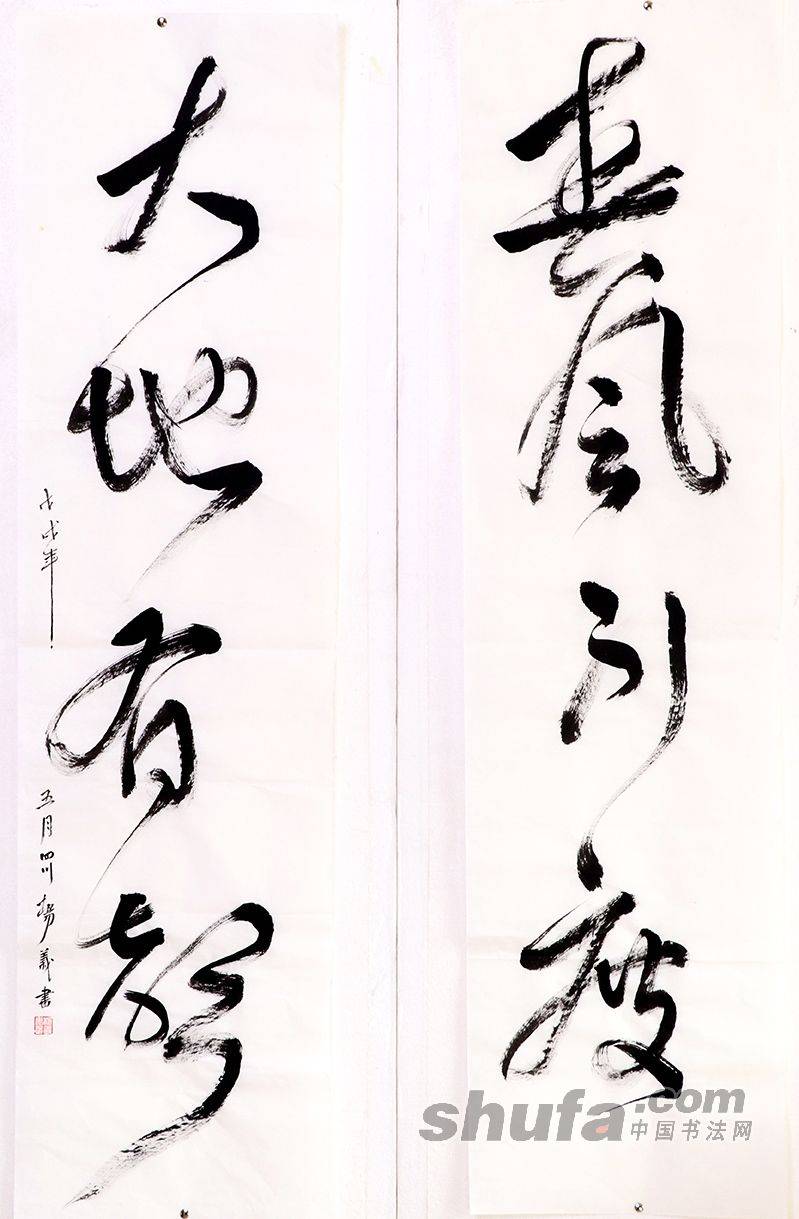 春風引度
大地有聲
戊戌年
五月四川楊義書
shufa.com
中国书法网